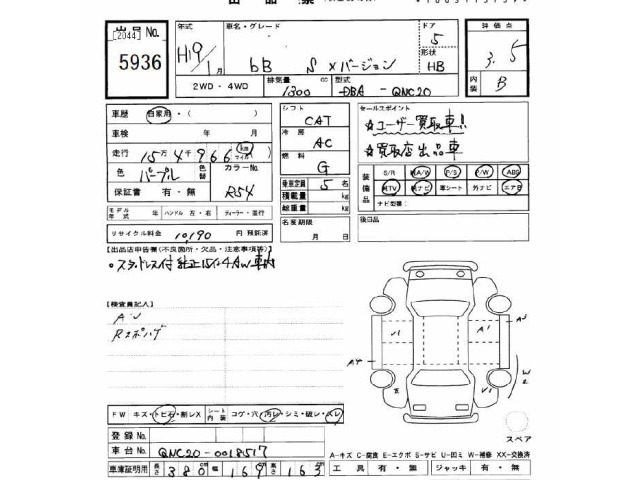 出品票
出品 No.
[2044]
5936
年式 H19 / 1月
車名・グレード bB S Xバージョン
ドア 5
形状 HB
評価点 3.5
内装 B
2WD・4WD
排気量 1300 cc
型式 DBA - QNC20
車歴 自家用・( )
車検 年 月
走行 15万4千966 km マイル
色 パープル 色替
保証書 有・無 R54
モデル年式 年 ハンドル 左・右 ディーラー・並行
リサイクル料金 10,190 円 預託済
シフト CAT
冷房 AC
燃料 G
乗車定員 5 名
積載量 kg
総重量 kg
名変期限
月 日
セールスポイント
☆ユーザー買取車!
☆買取店出品車
装備品 S/R 純A/W P/S P/W ABS
純TV 純ナビ 革シート 外ナビ エアB
ナビ型番:
後日品
【出品店申告欄(不良箇所・欠品・注意事項等)】
。スタッドレス付 純正15インチAW車内
【検査員記入】
Aリ
Rスポハゲ
FW キズ・トビ石・割レX シート内装 コゲ・穴・汚レ・シミ・破レ・スレ
登録 No.
車台 No. QNC20-0018517
車庫証明用 長さ 380 cm 幅 169 高さ 163
A3
A1
U1
A4
W2
スペア
A-キズ C-腐食 E-エクボ S-サビ U-凹ミ W-補修 XX-交換済
工具 有・無 ジャッキ 有・無